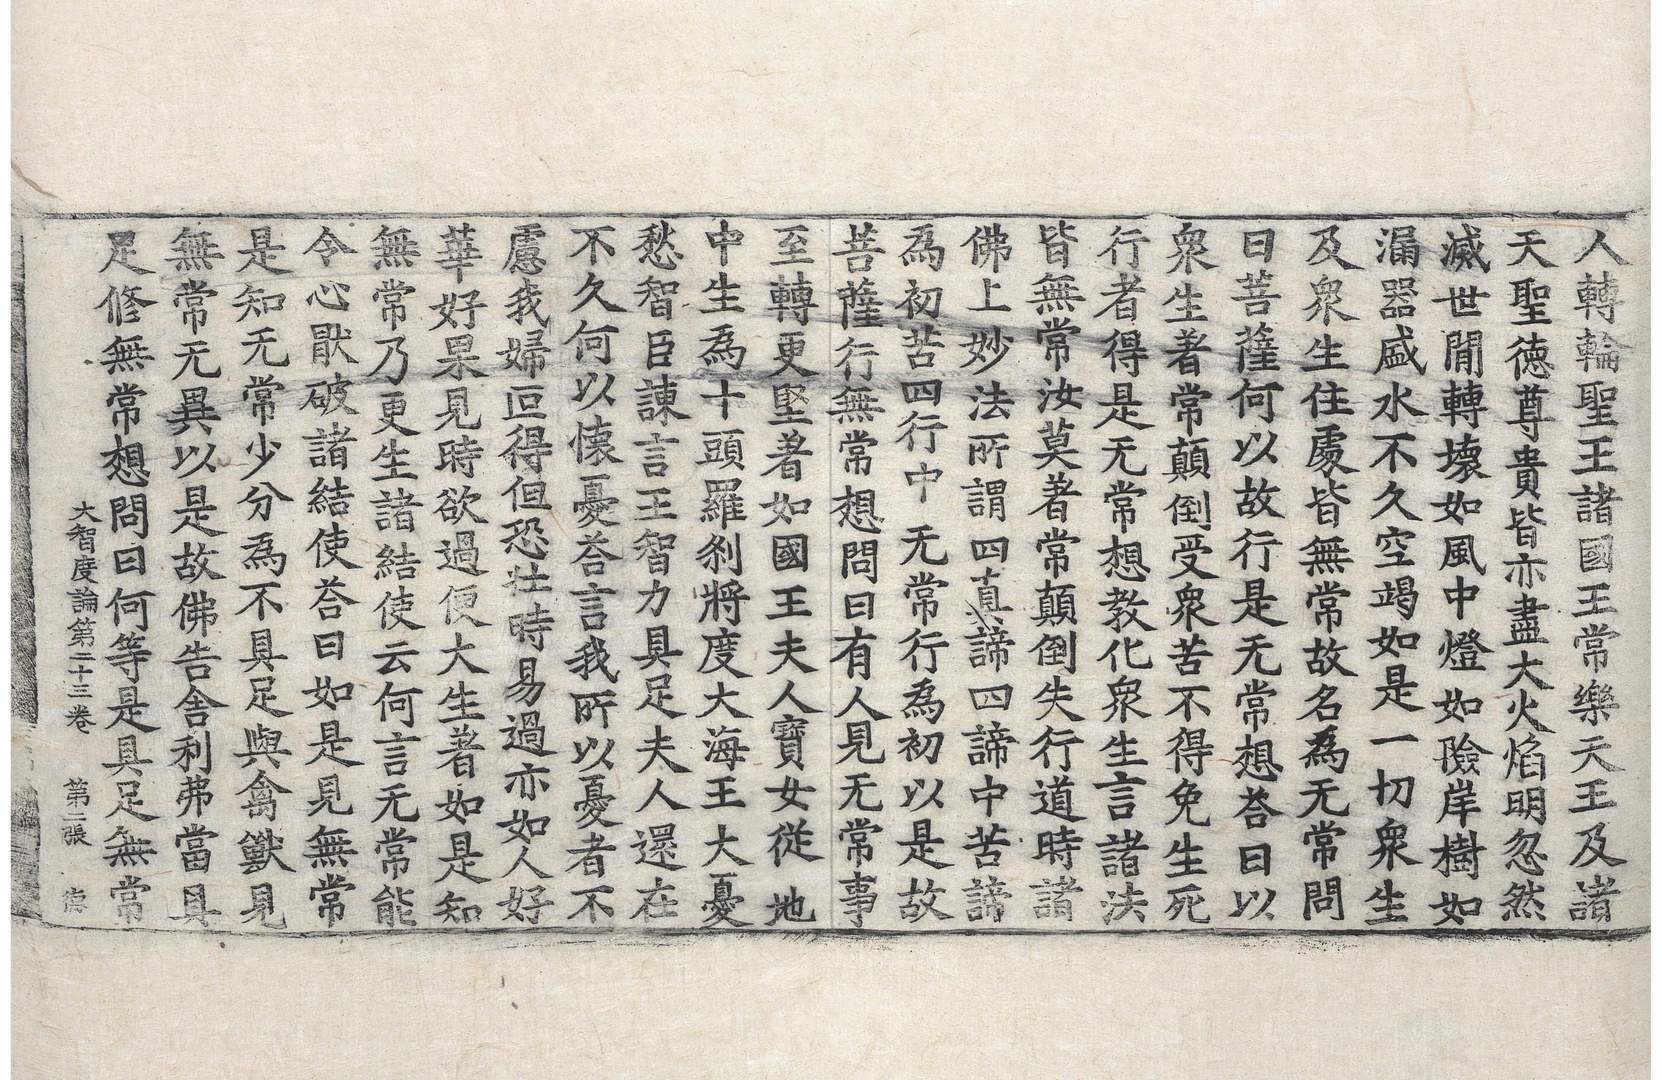 人轉輪聖王諸國王常樂天王及諸
天聖德尊貴皆亦盡大火焰明忽然
滅世間轉壞如風中燈如險岸樹如
漏器盛水不久空竭如是一切衆生
及衆生住處皆無常故名為无常問
曰菩薩何以故行是无常想荅曰以
衆生著常顛倒受衆苦不得免生死
行者得是无常想教化衆生言諸法
皆無常汝莫著常顛倒失行道時諸
佛上妙法所謂四真諦四諦中苦諦
為初苦四行中无常行為初以是故
菩薩行無常想問曰有人見无常事
至轉更堅著如國王夫人寶女從地
中生為十頭羅剎將度大海王大憂
愁智臣諫言王智力具足夫人還在
不久何以懷憂荅言我所以憂者不
慮我婦叵得但恐壮時易過亦如人好
華好果見時欲過便大生著如是知
無常乃更生諸結使云何言无常能
令心猒破諸結使荅曰如是見無常
是知无常少分為不具足與禽獸見
無常无異以是故佛告舍利弗當具
足修無常想問曰何等是具足無常
大智度論第二十三卷　第二張　德